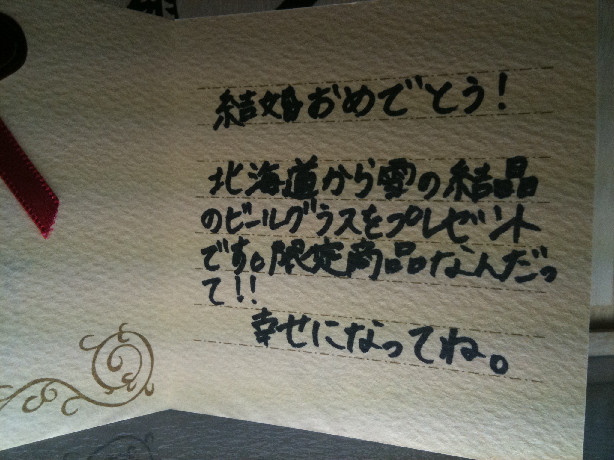 結婚おめでとう！
北海道から雪の結晶
のビールグラスをプレゼント
です。限定商品なんだっ
て！！
幸せになってね。